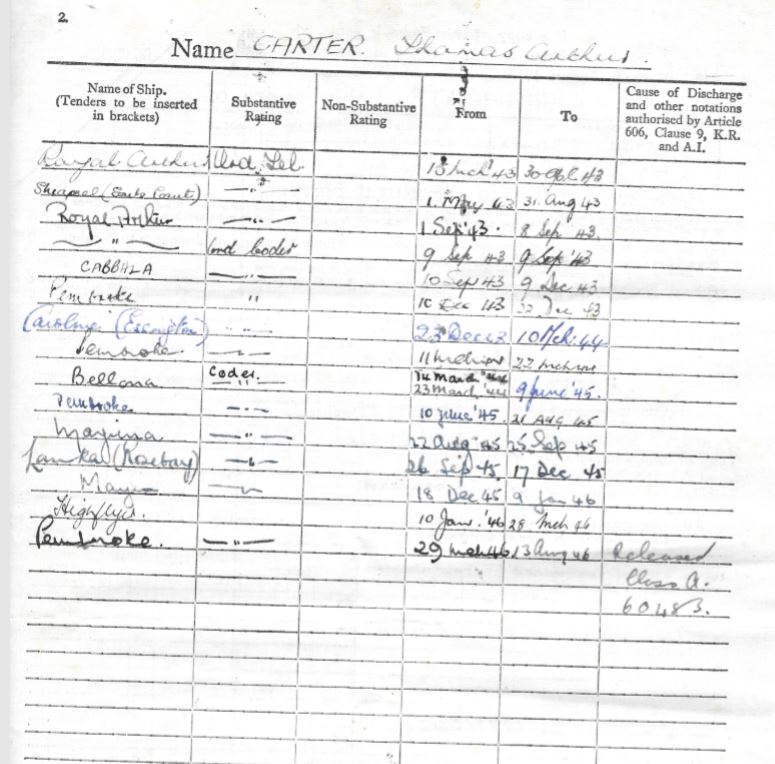 2.
Name CARTER Thomas Arthur.
Name of Ship. (Tenders to be inserted in brackets) Substantive Rating Non-Substantive Rating From To Cause of Discharge and other notations authorised by Article 606, Clause 9, K.R. and A.I.
Royal Arthur Ord. Tel. 13 Mch '43 30 Apl 43
1. May 43 31. Aug 43
Royal Arthur —"— 1 Sep '43. 8 Sep 43.
—"— Ord Coder 9 Sep 43 9 Sep '43
CABBALA —"— 10 Sep 43 9 Dec 43
Pembroke " 10 Dec 43 22 Dec 43
Caroline (Essington) —"— 23 Dec 10 Mch. 44
Pembroke —"— 11 22
Bellona Coder. 14 March '44
—"— 23 March '44 9 June '45.
Pembroke —"— 10 June '45 21 AUG 45
Mayina —"— 22 Aug '45 25 Sep 45
Lanka (Rosebay) —"— 26 Sep 45 17 Dec 45
18 Dec 45 9 Jan 46
Highflyer. 10 Jan. '46 28 Mch 46
Pembroke. —"— 29 Mch 46 13 Aug 46 Released
Class A.